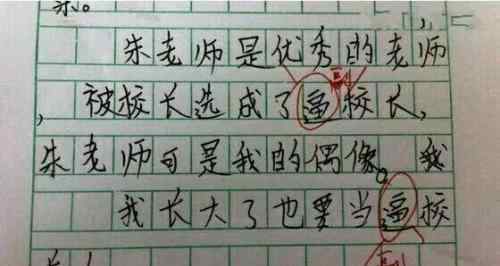 朱老师是优秀的老师
副
，被校长选成了逼校长，
朱老师可是我的偶像。我
我长大了也要当逼校
副